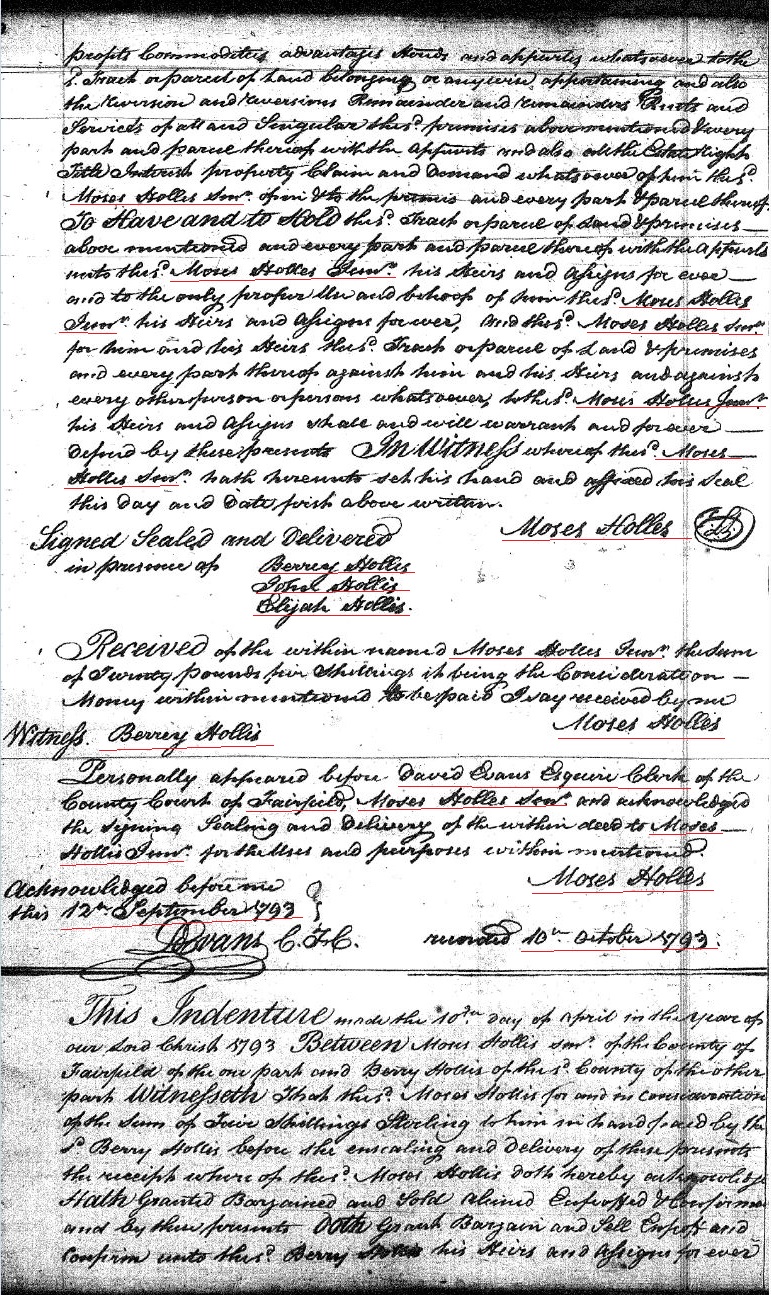 profits Commodities advantages Hereds and appurts whatsoever to the
sd. Tract or parcel of Land belonging or anywise appertaining and also
the reversion and reversions Remainder and remainders Rents and
Services of all and Singular the sd. premises above mentioned & every
part and parcel thereof with the appurts and also all the Estate Right
Title Interest property Claim and demand whatsoever of him the sd.
Moses Hollis Senr. of in & to the premis and every part & parcel thereof
To Have and to Hold the sd. Tract or parcel of Land & premises
above mentioned and every part and parcel thereof with the appurts
unto the sd. Moses Holles Junr. his Heirs and Assigns for ever
and to the only proper Use and behoof of him the sd. Moses Holles
Junr. his Heirs and Assigns forever, and the sd. Moses Holles Senr
for him and his Heirs the sd. Tract or parcel of Land & premises
and every part thereof against him and his Heirs and against
every other person or persons whatsoever, to the sd. Moses Holles Junr.
his Heirs and Assigns shall and will warrant and forever
defend by these presents In Witness whereof the sd. Moses
Holles Senr. hath hereunto set his hand and affixed his Seal
this day and Date first above written.
Signed Sealed and Delivered Moses Holles LS
in presence of Berrey Hollis
John Hollis
Elijah Hollis.
Received of the within named Moses Holles Junr. the Sum
of Twenty pounds five Shillings it being the Consideration
Money within mentioned to be paid I say received by me
Witness. Berrey Hollis Moses Holles
Personally appeared before David Evans Esquire Clerk of the
County Court of Fairfield, Moses Holles Senr. and acknowledged
the signing Sealing and Delivery of the within deed to Moses
Hollis Junr. for the Uses and purposes within mentioned.
Moses Holles
Acknowledged before me
this 12th September 1793
DEvans C.F.C. recorded 10th October 1793.
This Indenture made the 10th day of April in the Year of
our Lord Christ 1793 Between Moses Hollis Snr. of the County of
Fairfield of the one part and Berry Hollis of the sd. County of the other
part Witnesseth That the sd. Moses Hollis for and in consideration
of the Sum of Five Shillings Sterling to him in hand paid by the
sd Berry Hollis before the ensealing and delivery of these presents
the receipt where of the sd. Moses Hollis doth hereby acknowledge
Hath Granted Bargained and Sold aliened Enfeoffed & Confirmed
and by these presents Doth Grant Bargain and Sell Enfeoff and
Confirm unto the sd. Berry Hollis his Heirs and Assigns for ever